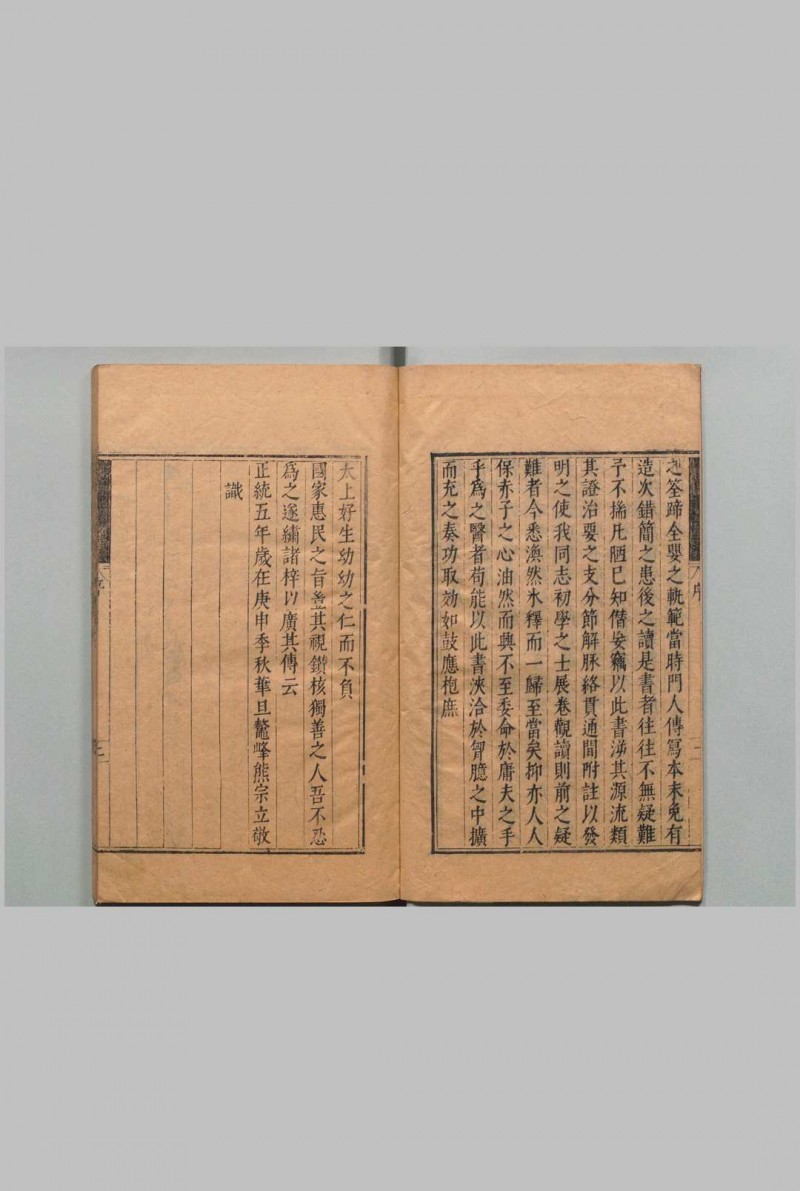 之筌蹄全嬰之軌範當時門人傳寫本未免有
造次錯簡之患後之讀是書者往往不無疑難
予不揣凡陋已知僣妄竊以此書泝其源流類
其證治要之支分節解脉絡貫通間附註以發
明之使我同志初學之士展卷觀讀則前之疑
難者今悉渙然氷釋而一歸至當矣抑亦人人
保赤子之心油然而興不至委命於庸夫之手
乎爲之醫者苟能以此書浹洽於胷臆之中擴
而充之奏功取効如鼓應枹庶
序
二
太上好生幼幼之仁而不負
國家惠民之旨盖其視鑚核獨善之人吾不忍
爲之遂繡諸梓以廣其傳云
正統五年歲在庚申季秋華旦鼇峰熊宗立敬
識